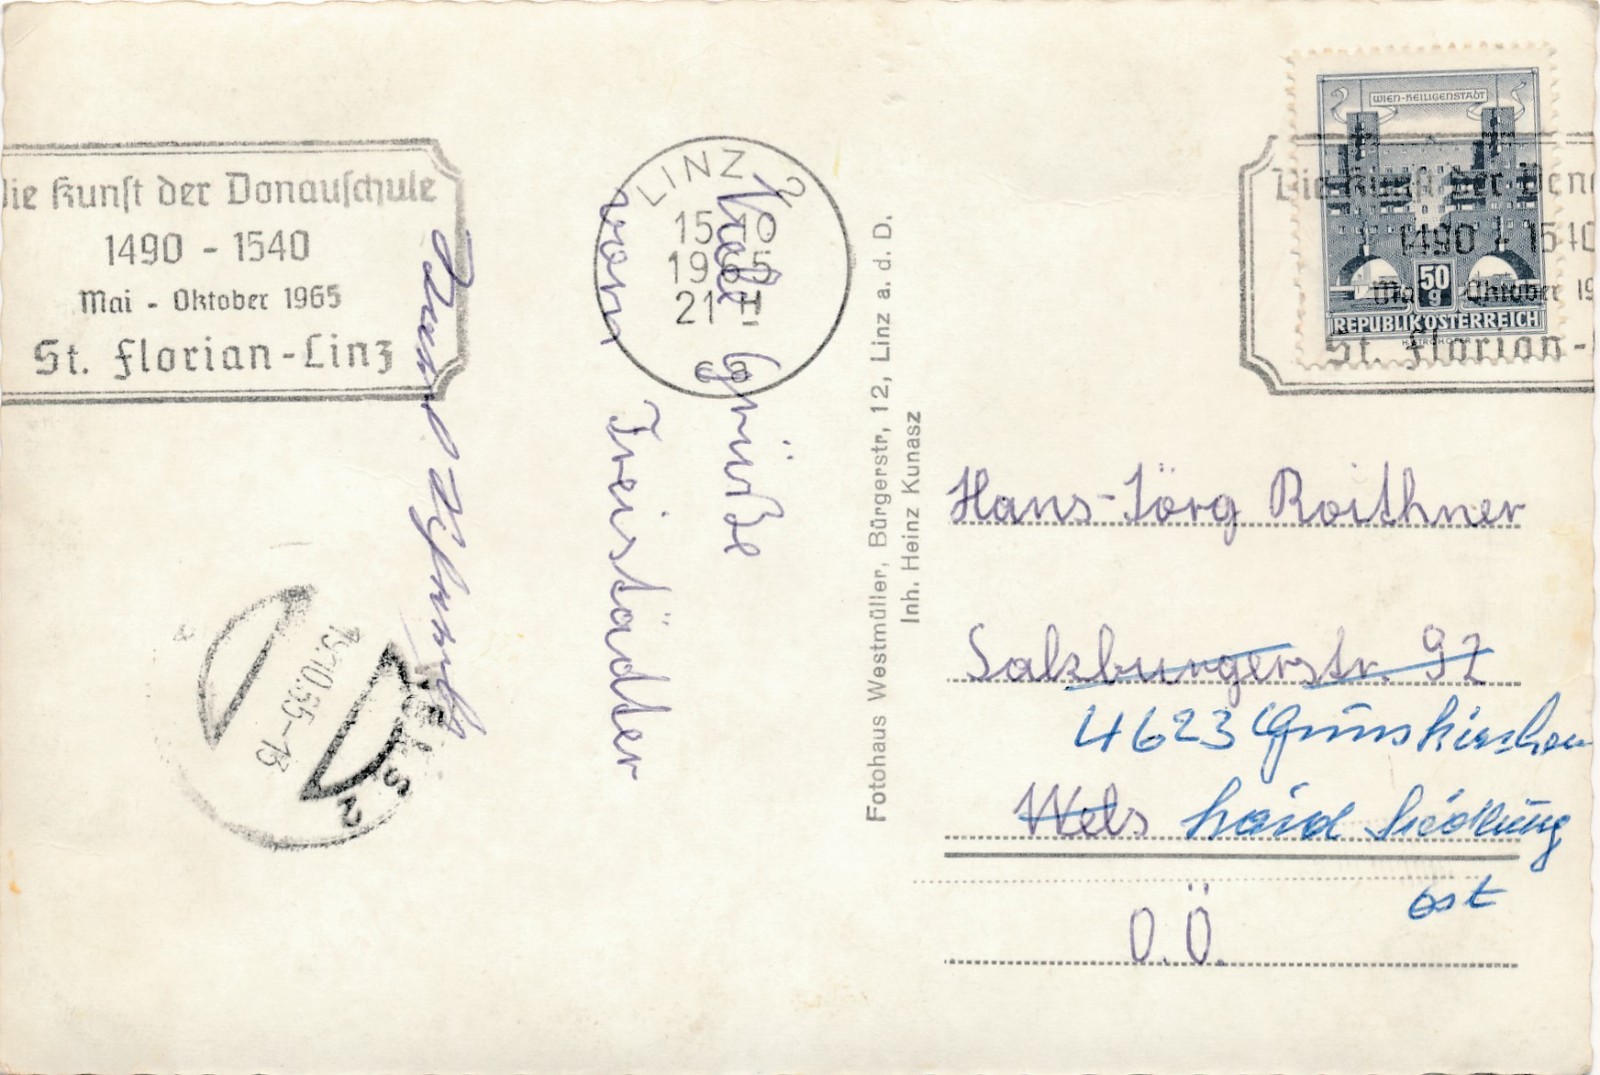 Die Kunst der Donauschule
1490 - 1540
Mai - Oktober 1965
St. Florian - Linz
LINZ 2
15.10
1965
21 H
Viele Grüße
vom Freistädter
WELS 2
Fotohaus Westmüller, Bürgerstr. 12, Linz a. d. D.
Inh. Heinz Kunasz
WIEN-HEILIGENSTADT
50
g
REPUBLIK ÖSTERREICH
Die Kunst der Don
1490 - 1540
Mai - Oktober 19
St. Florian -
Hans-Jörg Roithner
Salzburgerstr. 97
4623 Gunskirchen
Wels Haid Siedlung
Ost
O.Ö.